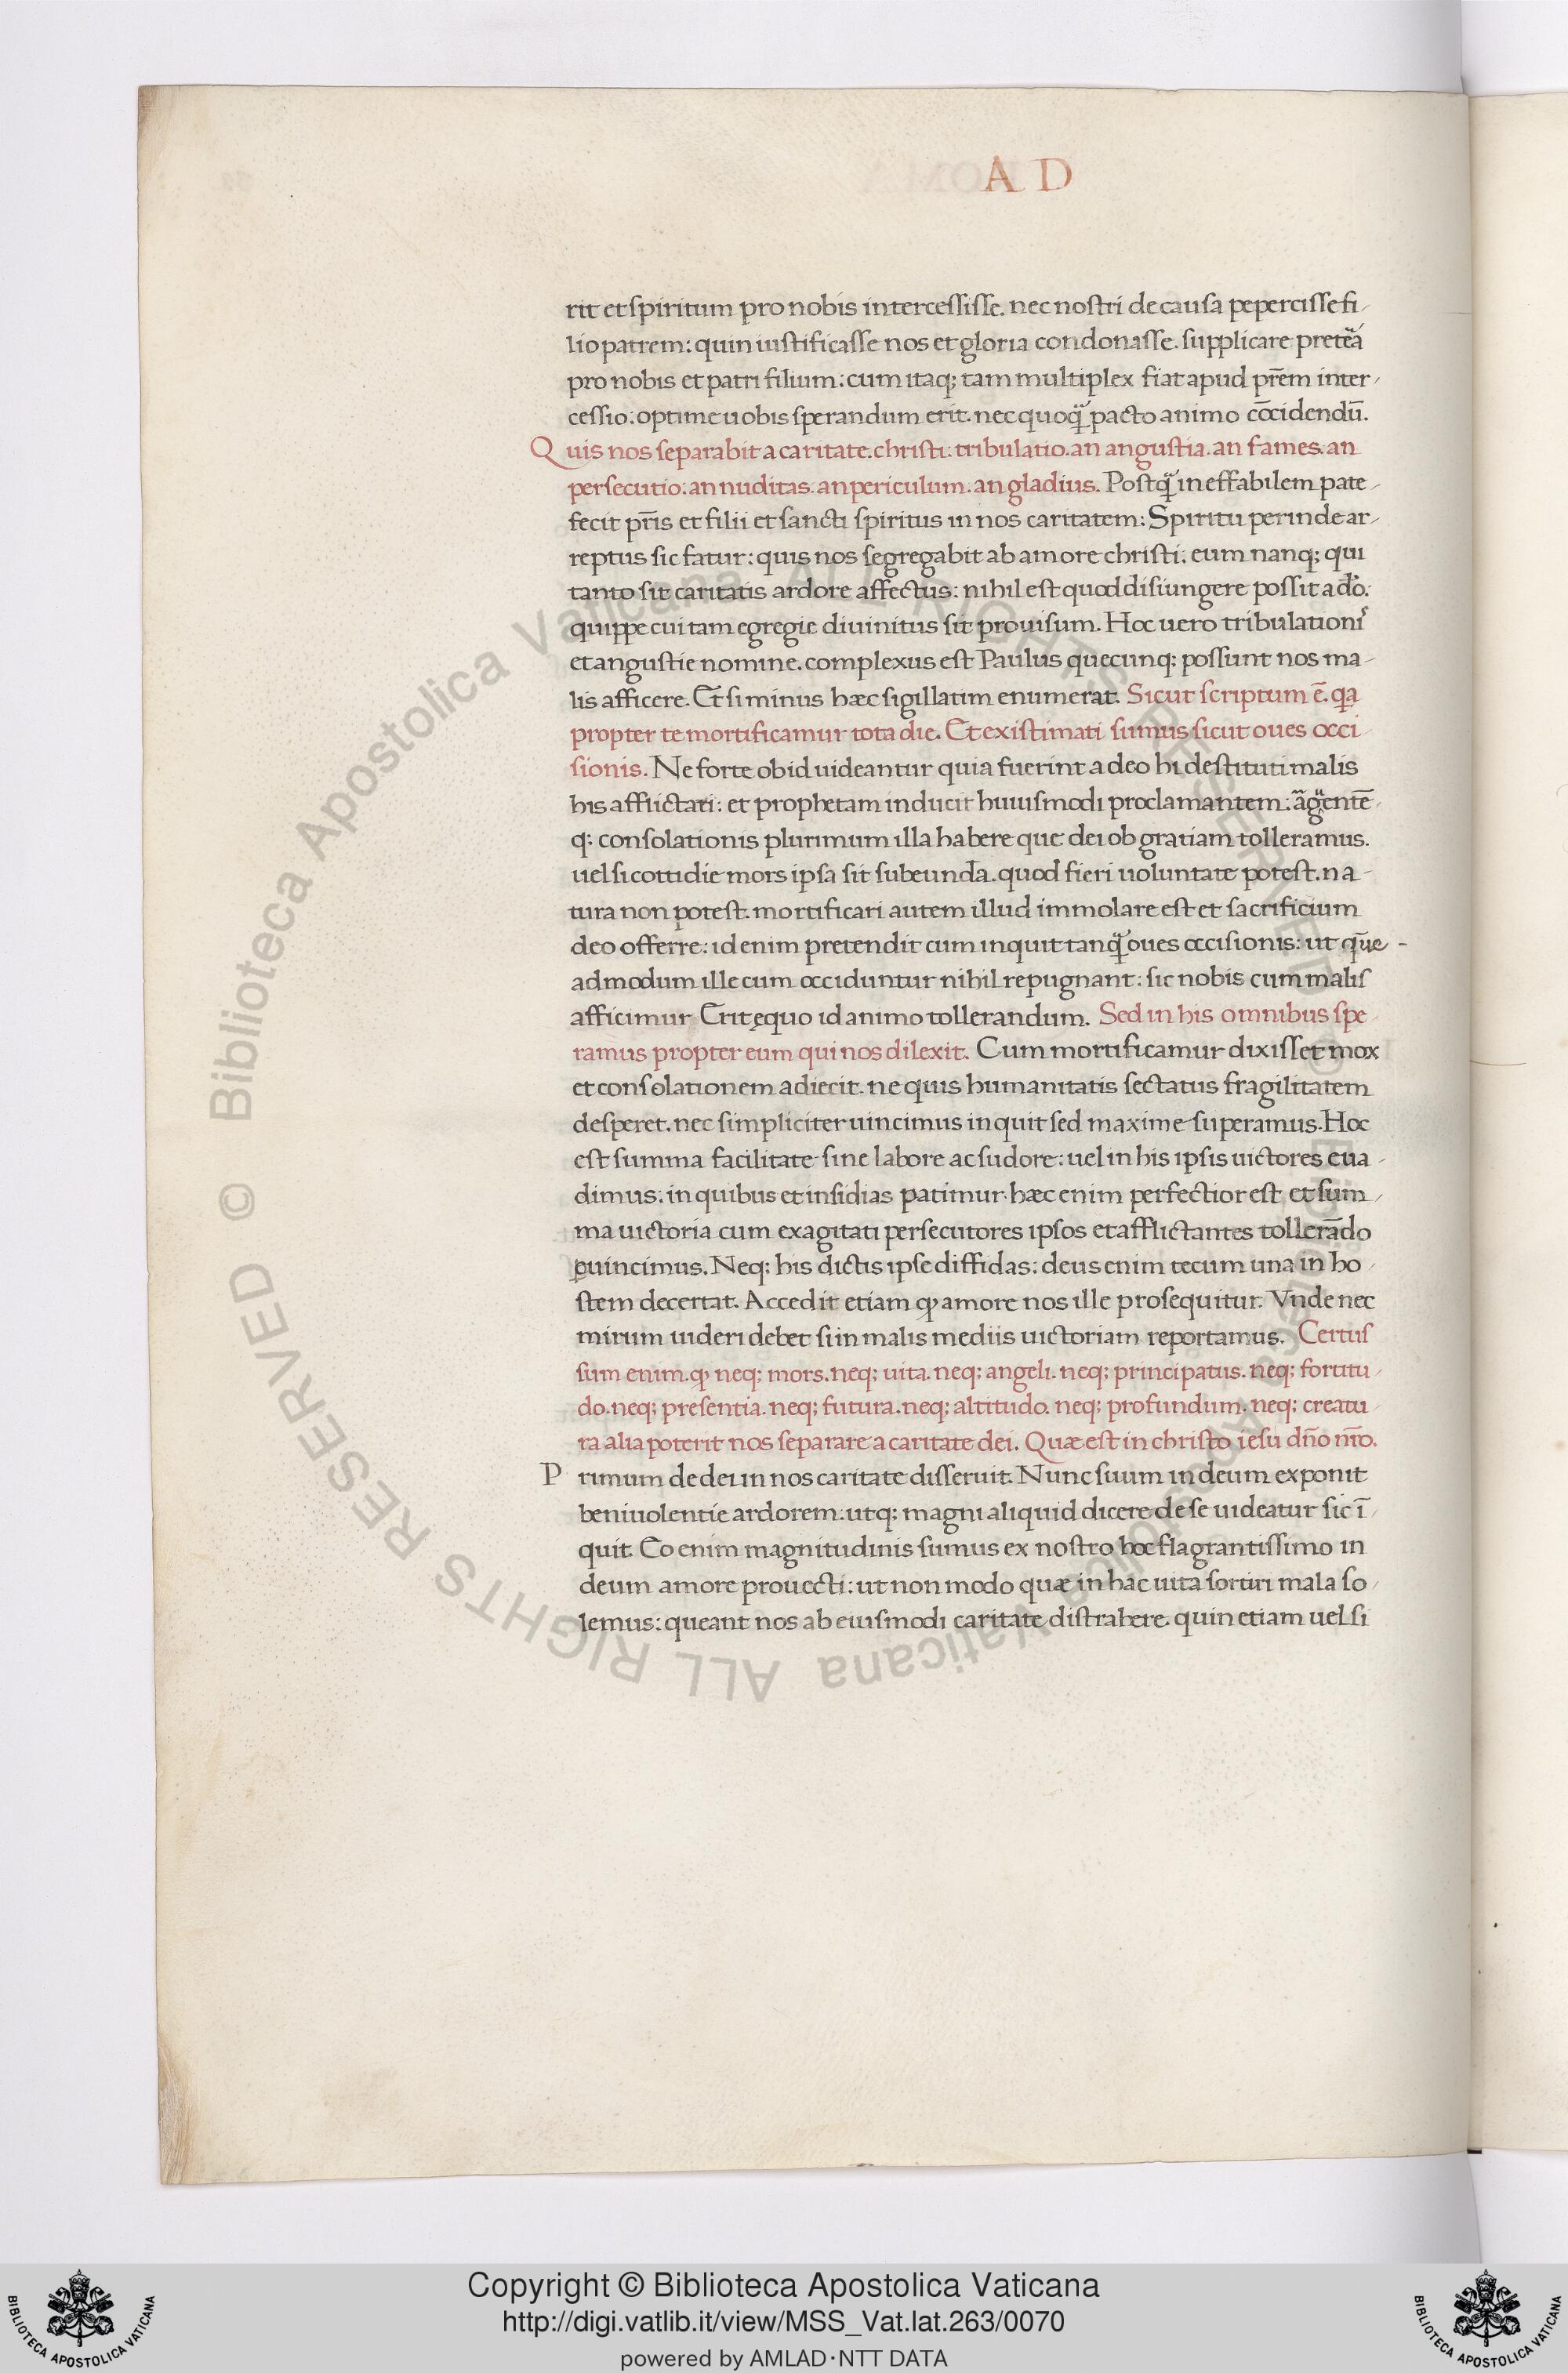 A D
rit et spiritum pro nobis intercessisse. nec nostri de causa pepercisse fi-
lio patrem: quin iustificasse nos et gloria condonasse. supplicare preteã
pro nobis et patri filium: cum itaq; tam multiplex fiat apud pr̃em inter-
cessio: optime uobis sperandum erit. nec quoq̃ pacto animo cõcidendũ.
Quis nos separabit a caritate. christi: tribulatio. an angustia. an fames. an
persecutio: an nuditas. an periculum. an gladius. Postq̃ ineffabilem pate-
fecit pr̃is et filii et sancti spiritus in nos caritatem: Spiritu perinde ar-
reptus sic fatur: quis nos segregabit ab amore christi: eum nanq; qui
tanto sit caritatis ardore affectus: nihil est quod disiungere possit a do:
quippe cui tam egregie diuinitus sit prouisum. Hoc uero tribulationis
et angustie nomine. complexus est Paulus quecunq; possunt nos ma-
lis afficere. Et si minus hæc sigillatim enumerat. Sicut scriptum ẽ. qa
propter te mortificamur tota die. Et existimati sumus sicut oues occi-
sionis. Ne forte ob id uideantur quia fuerint a deo hi destituti malis
his afflictati: et prophetam inducit huiusmodi proclamantem:
q; consolationis plurimum illa habere que dei ob gratiam tolleramus.
uel si cottidie mors ipsa sit subeunda. quod fieri uoluntate potest. na-
tura non potest. mortificari autem illud immolare est et sacrificium
deo offerre: id enim pretendit cum inquit tanq̃ oues occisionis: ut que-
admodum ille cum occiduntur nihil repugnant: sic nobis cum malis
afficimur Erit ęquo id animo tollerandum. Sed in his omnibus spe-
ramus propter eum qui nos dilexit. Cum mortificamur dixisset mox
et consolationem adiecit. ne quis humanitatis sectatus fragilitatem
desperet. nec simpliciter uincimus inquit sed maxime superamus. Hoc
est summa facilitate sine labore ac sudore: uel in his ipsis uictores eua-
dimus: in quibus et insidias patimur. hæc enim perfectior est et sum-
ma uictoria cum exagitati persecutores ipsos et afflictantes tollerãdo
ꝑuincimus. Neq; his dictis ipse diffidas: deus enim tecum una in ho-
stem decertat. Accedit etiam ꝙ amore nos ille prosequitur. Vnde nec
mirum uideri debet si in malis mediis uictoriam reportamus. Certus
sum enim. ꝙ neq; mors. neq; uita. neq; angeli. neq; principatus. neq; fortitu-
do. neq; presentia. neq; futura. neq; altitudo. neq; profundum. neq; creatu-
ra alia poterit nos separare a caritate dei. Quæ est in christo iesu dño nr̃o.
Primum de dei in nos caritate disseruit. Nunc suum in deum exponit
beniuolentie ardorem: utq; magni aliquid dicere de se uideatur sic ĩ-
quit. Eo enim magnitudinis sumus ex nostro hoc flagrantissimo in
deum amore prouecti: ut non modo quæ in hac uita sortiri mala so-
lemus: queant nos ab eiusmodi caritate distrahere. quin etiam uel si
© Biblioteca Apostolica Vaticana ALL RIGHTS RESERVED © Biblioteca Apostolica Vaticana ALL RIGHTS RESERVED
Copyright © Biblioteca Apostolica Vaticana
http://digi.vatlib.it/view/MSS_Vat.lat.263/0070
powered by AMLAD·NTT DATA
BIBLIOTECA APOSTOLICA VATICANA
BIBLIOTECA APOSTOLICA VATICANA